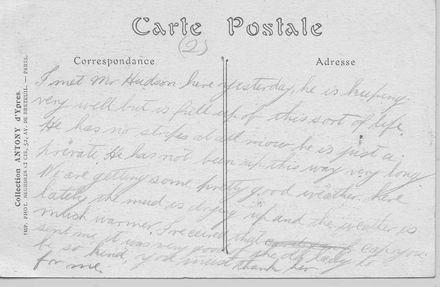 Carte Postale
(2)
Correspondance
Adresse
Collection ANTONY d'Ypres.
IMP. PHOT. NEURDEIN ET CIE. 52, AV. DE BRETEUIL. — PARIS.
I met Mr Hudson here yesterday, he is keeping
very well but is full up of this sort of life.
He has no stripes at all now he is just a
private, He has not been up this way very long
We are getting some pretty good weather here
lately the mud is drying up and the weather is
much warmer. I received that cap you
sent me, it was very good of the lady to
be so kind, you must thank her
for me.